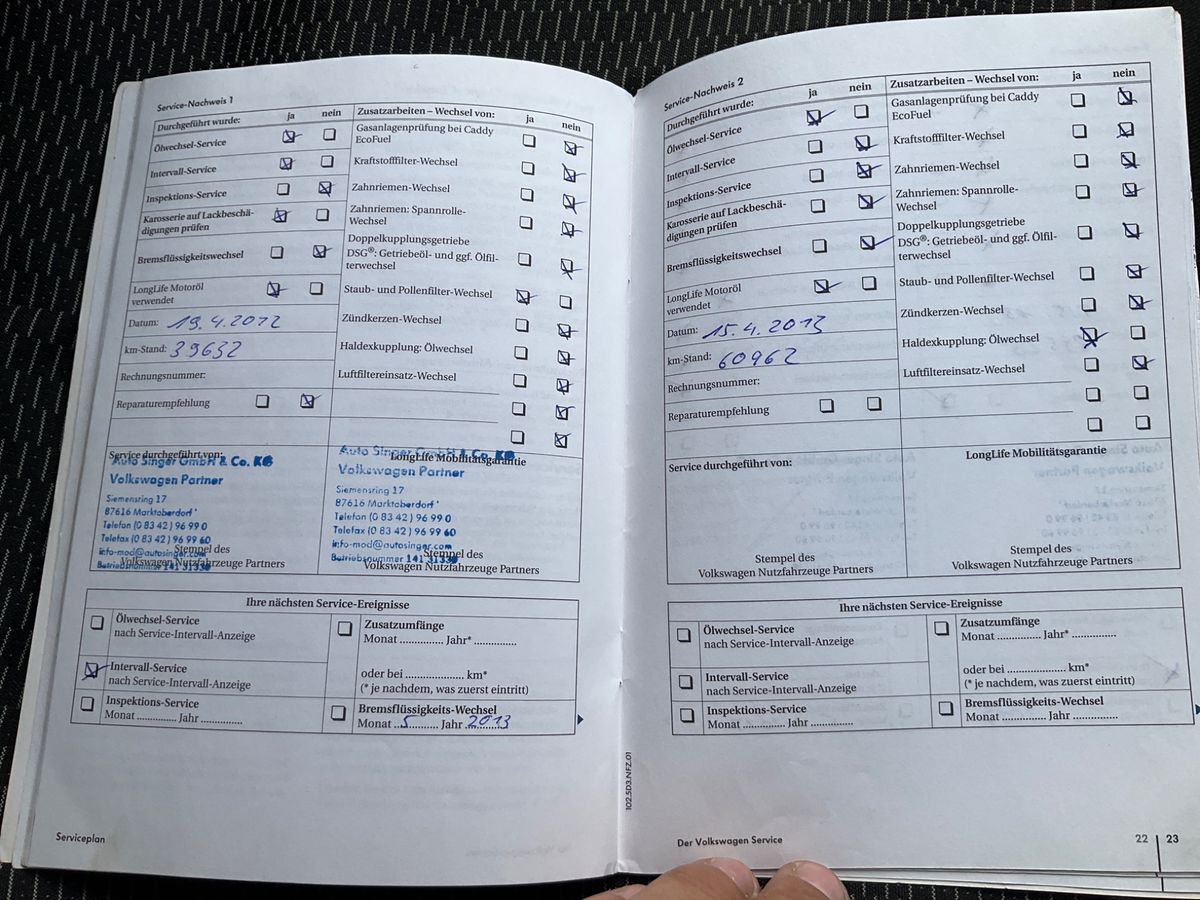 Service-Nachweis 1
Durchgeführt wurde: ja nein
Ölwechsel-Service
Intervall-Service
Inspektions-Service
Karosserie auf Lackbeschä-
digungen prüfen
Bremsflüssigkeitswechsel
LongLife Motoröl
verwendet
Datum: 19.4.2012
km-Stand: 39632
Rechnungsnummer:
Reparaturempfehlung
Zusatzarbeiten – Wechsel von: ja nein
Gasanlagenprüfung bei Caddy
EcoFuel
Kraftstofffilter-Wechsel
Zahnriemen-Wechsel
Zahnriemen: Spannrolle-
Wechsel
Doppelkupplungsgetriebe
DSG®: Getriebeöl- und ggf. Ölfil-
terwechsel
Staub- und Pollenfilter-Wechsel
Zündkerzen-Wechsel
Haldexkupplung: Ölwechsel
Luftfiltereinsatz-Wechsel
Service durchgeführt von:
Auto Singer GmbH & Co. KG
Volkswagen Partner
Siemensring 17
87616 Marktoberdorf
Telefon (0 83 42) 96 99 0
Telefax (0 83 42) 96 99 60
info-mod@autosinger.com
Betriebsnummer 141 31330
Stempel des
Volkswagen Nutzfahrzeuge Partners
LongLife Mobilitätsgarantie
Auto Singer GmbH & Co. KG
Volkswagen Partner
Siemensring 17
87616 Marktoberdorf
Telefon (0 83 42) 96 99 0
Telefax (0 83 42) 96 99 60
info-mod@autosinger.com
Betriebsnummer 141 31330
Stempel des
Volkswagen Nutzfahrzeuge Partners
Ihre nächsten Service-Ereignisse
Ölwechsel-Service
nach Service-Intervall-Anzeige
Intervall-Service
nach Service-Intervall-Anzeige
Inspektions-Service
Monat .............. Jahr ..............
Zusatzumfänge
Monat .............. Jahr* ..............
oder bei .................... km*
(* je nachdem, was zuerst eintritt)
Bremsflüssigkeits-Wechsel
Monat ..5.......... Jahr 2013
Serviceplan
102.5D3.NFZ.01
Service-Nachweis 2
Durchgeführt wurde: ja nein
Ölwechsel-Service
Intervall-Service
Inspektions-Service
Karosserie auf Lackbeschä-
digungen prüfen
Bremsflüssigkeitswechsel
LongLife Motoröl
verwendet
Datum: 15.4.2013
km-Stand: 60962
Rechnungsnummer:
Reparaturempfehlung
Zusatzarbeiten – Wechsel von: ja nein
Gasanlagenprüfung bei Caddy
EcoFuel
Kraftstofffilter-Wechsel
Zahnriemen-Wechsel
Zahnriemen: Spannrolle-
Wechsel
Doppelkupplungsgetriebe
DSG®: Getriebeöl- und ggf. Ölfil-
terwechsel
Staub- und Pollenfilter-Wechsel
Zündkerzen-Wechsel
Haldexkupplung: Ölwechsel
Luftfiltereinsatz-Wechsel
Service durchgeführt von:
Stempel des
Volkswagen Nutzfahrzeuge Partners
LongLife Mobilitätsgarantie
Stempel des
Volkswagen Nutzfahrzeuge Partners
Ihre nächsten Service-Ereignisse
Ölwechsel-Service
nach Service-Intervall-Anzeige
Intervall-Service
nach Service-Intervall-Anzeige
Inspektions-Service
Monat .............. Jahr ..............
Zusatzumfänge
Monat .............. Jahr* ..............
oder bei .................... km*
(* je nachdem, was zuerst eintritt)
Bremsflüssigkeits-Wechsel
Monat .............. Jahr ..............
Der Volkswagen Service
22 | 23